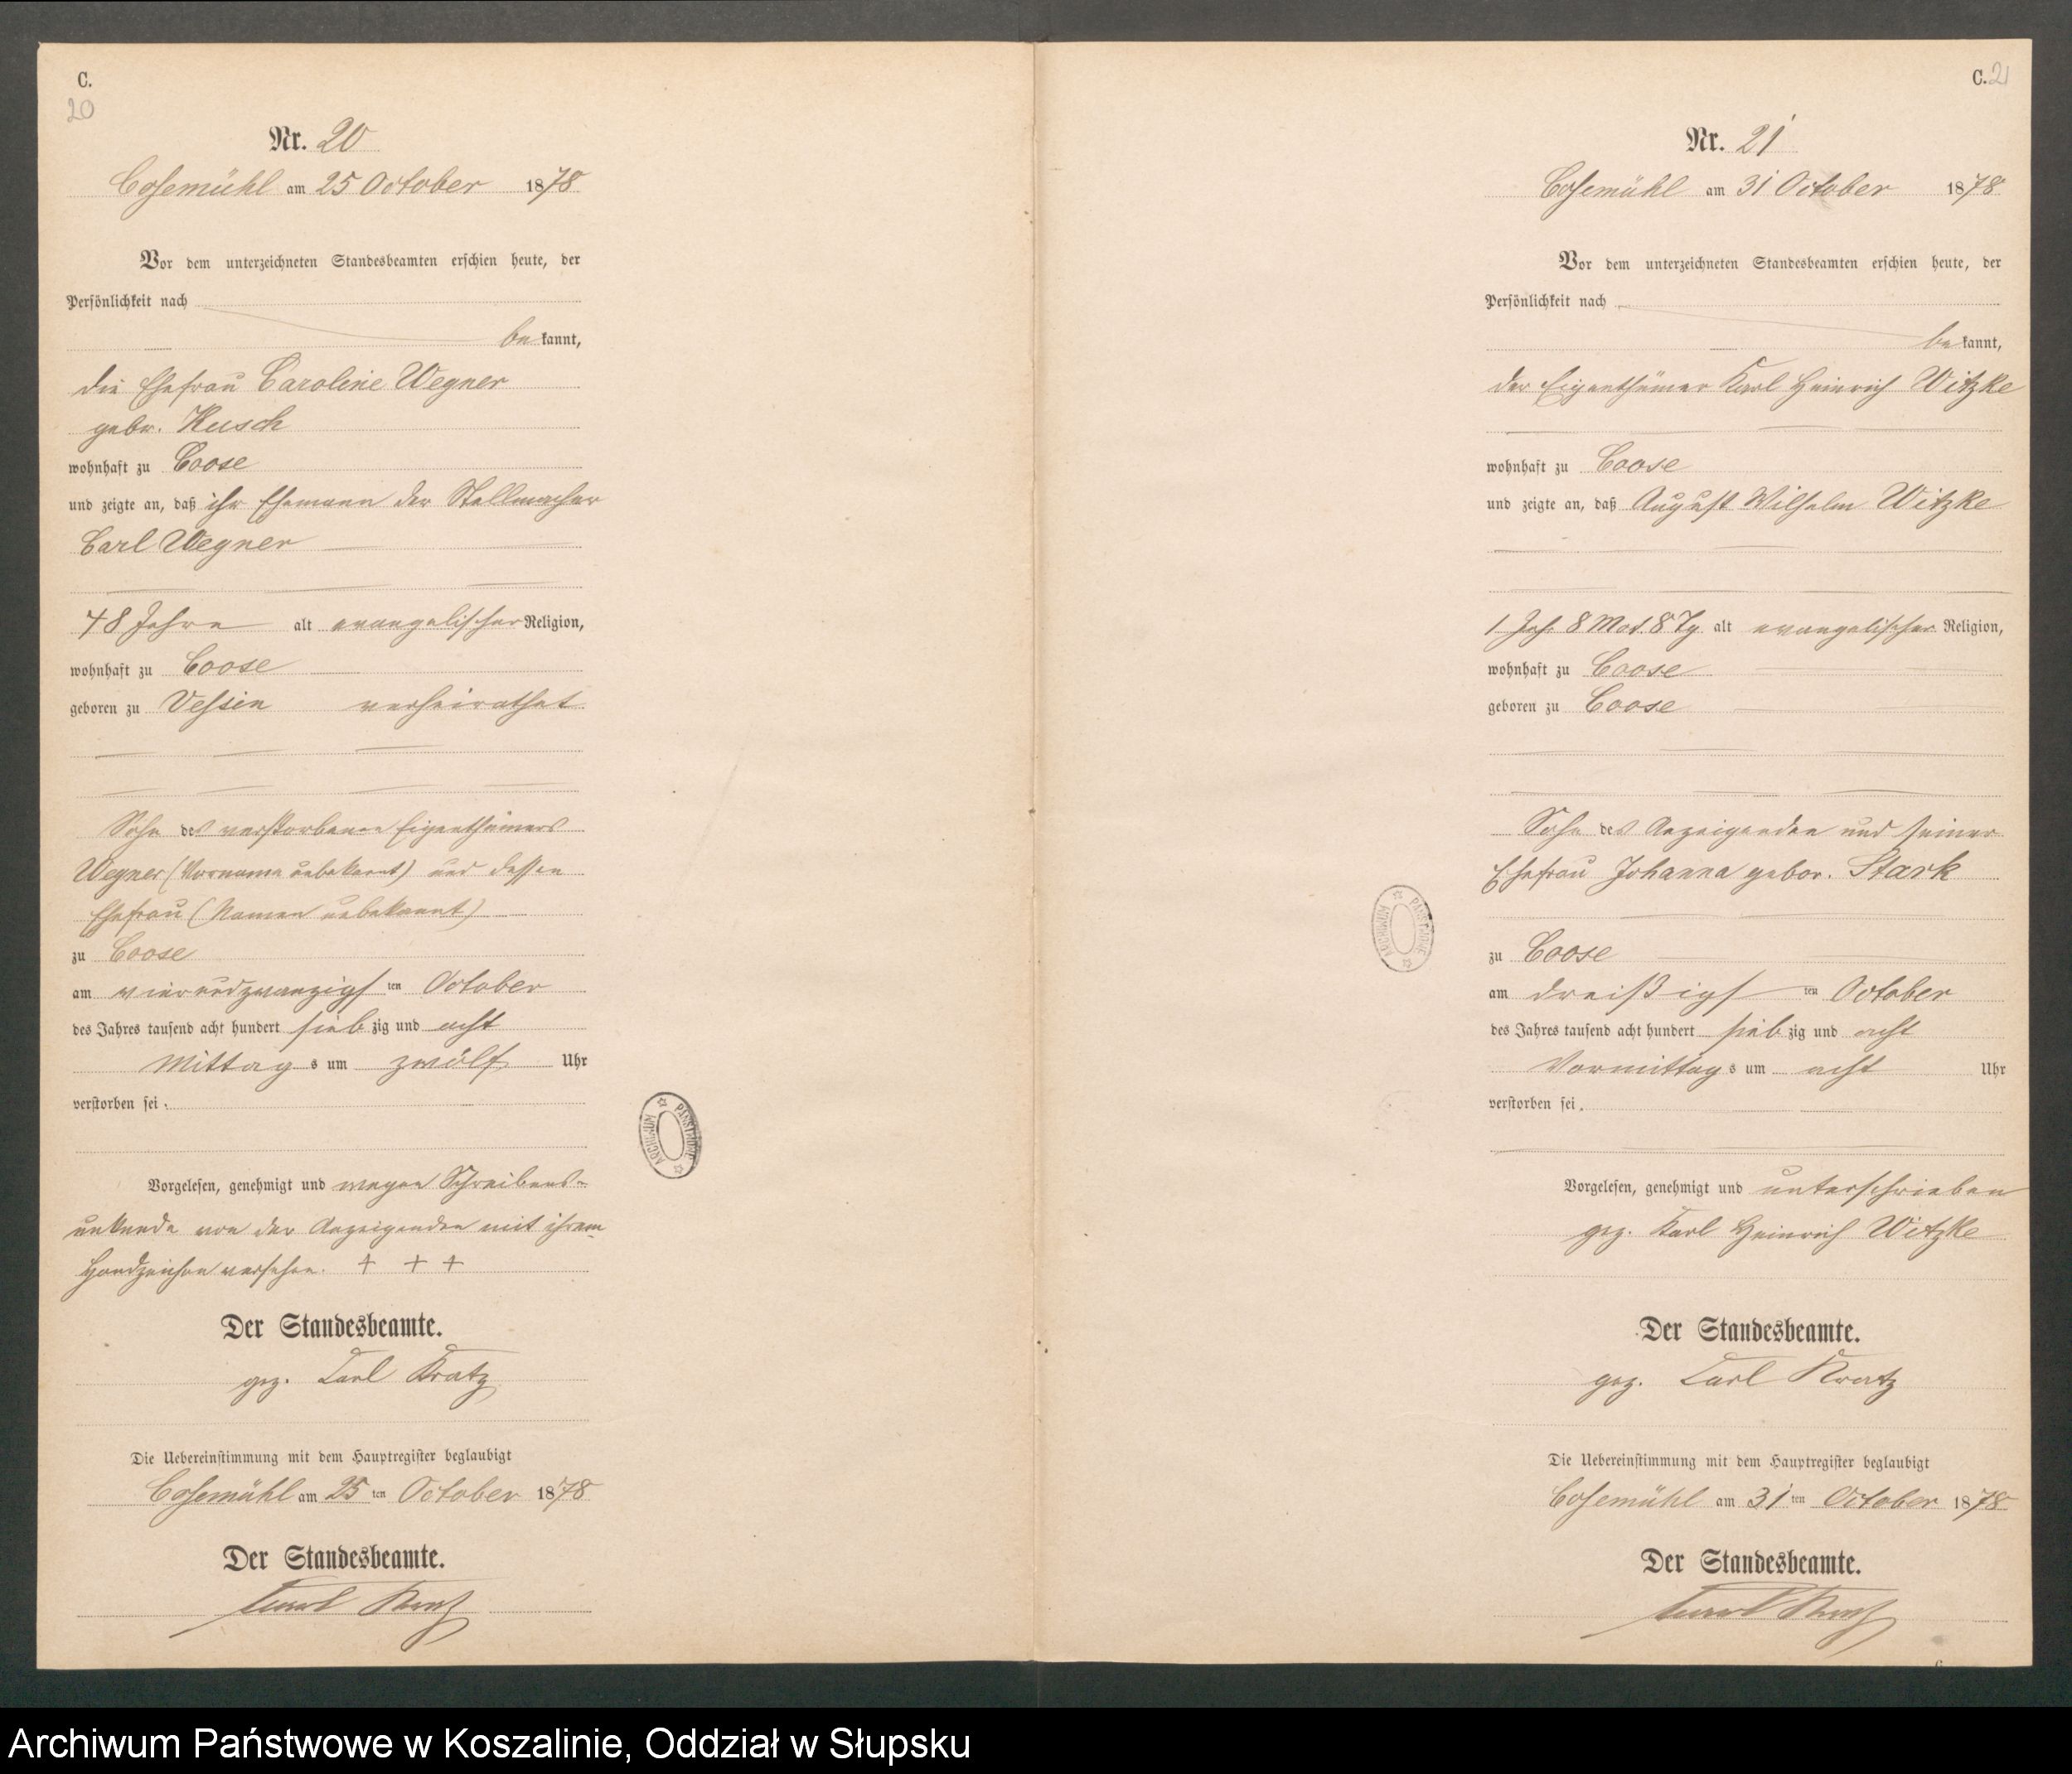 C.
20
Nr. 20
Cosemühl am 25 October 1878
Vor dem unterzeichneten Standesbeamten erschien heute, der
Persönlichkeit nach
bekannt,
die Ehefrau Caroline Wegner
gebr. Kusch
wohnhaft zu Coose
und zeigte an, daß ihr Ehemann der Stellmacher
Carl Wegner
48 Jahre alt evangelischer Religion,
wohnhaft zu Coose
geboren zu Vessin verheirathet
Sohn des verstorbenen Eigenthümers
Wegner (Vorname unbekannt) und dessen
Ehefrau (Namen unbekannt)
zu Coose
am vierundzwanzigsten October
des Jahres tausend acht hundert siebzig und acht
Mittags um zwölf Uhr
verstorben sei.
Vorgelesen, genehmigt und wegen Schreibens-
unkunde von der Anzeigenden mit ihrem
Handzeichen versehen. + + +
Der Standesbeamte.
gez. Carl Kratz
Die Uebereinstimmung mit dem Hauptregister beglaubigt
Cosemühl am 25ten October 1878
Der Standesbeamte.
Carl Kratz
ARCHIWUM PAŃSTWOWE
C. 21
Nr. 21
Cosemühl am 31 October 1878
Vor dem unterzeichneten Standesbeamten erschien heute, der
Persönlichkeit nach
bekannt,
der Eigenthümer Karl Heinrich Witzke
wohnhaft zu Coose
und zeigte an, daß August Wilhelm Witzke
1 Jah. 8 Mot. 8 Tg. alt evangelischer Religion,
wohnhaft zu Coose
geboren zu Coose
Sohn des Anzeigenden und seiner
Ehefrau Johanna gebor. Stark
zu Coose
am dreißigsten October
des Jahres tausend acht hundert siebzig und acht
Vormittags um acht Uhr
verstorben sei.
Vorgelesen, genehmigt und unterschrieben
gez. Karl Heinrich Witzke
Der Standesbeamte.
gez. Carl Kratz
Die Uebereinstimmung mit dem Hauptregister beglaubigt
Cosemühl am 31ten October 1878
Der Standesbeamte.
Carl Kratz
ARCHIWUM PAŃSTWOWE
Archiwum Państwowe w Koszalinie, Oddział w Słupsku